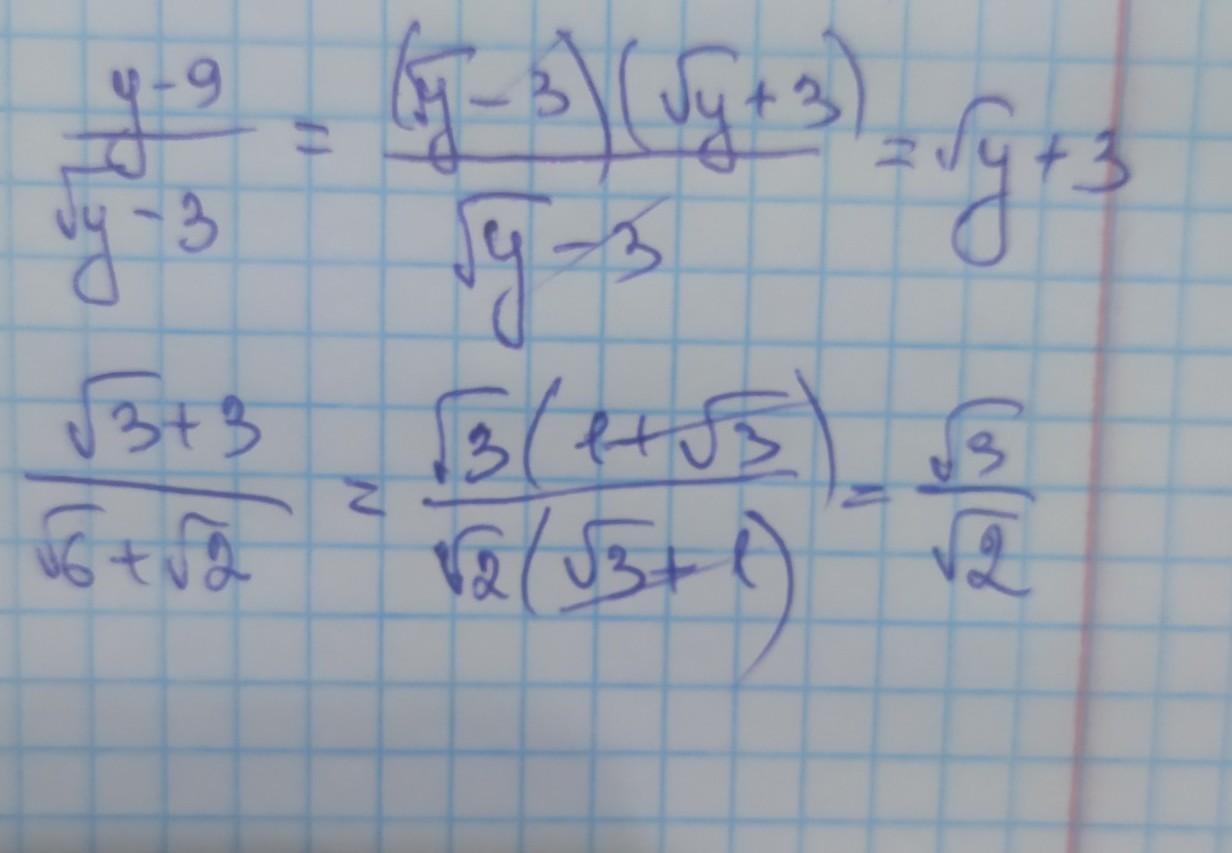 (y-9)/(√y-3) = ((√y-3)(√y+3))/(√y-3) = √y+3
(√3+3)/(√6+√2) = (√3(1+√3))/(√2(√3+1)) = √3/√2